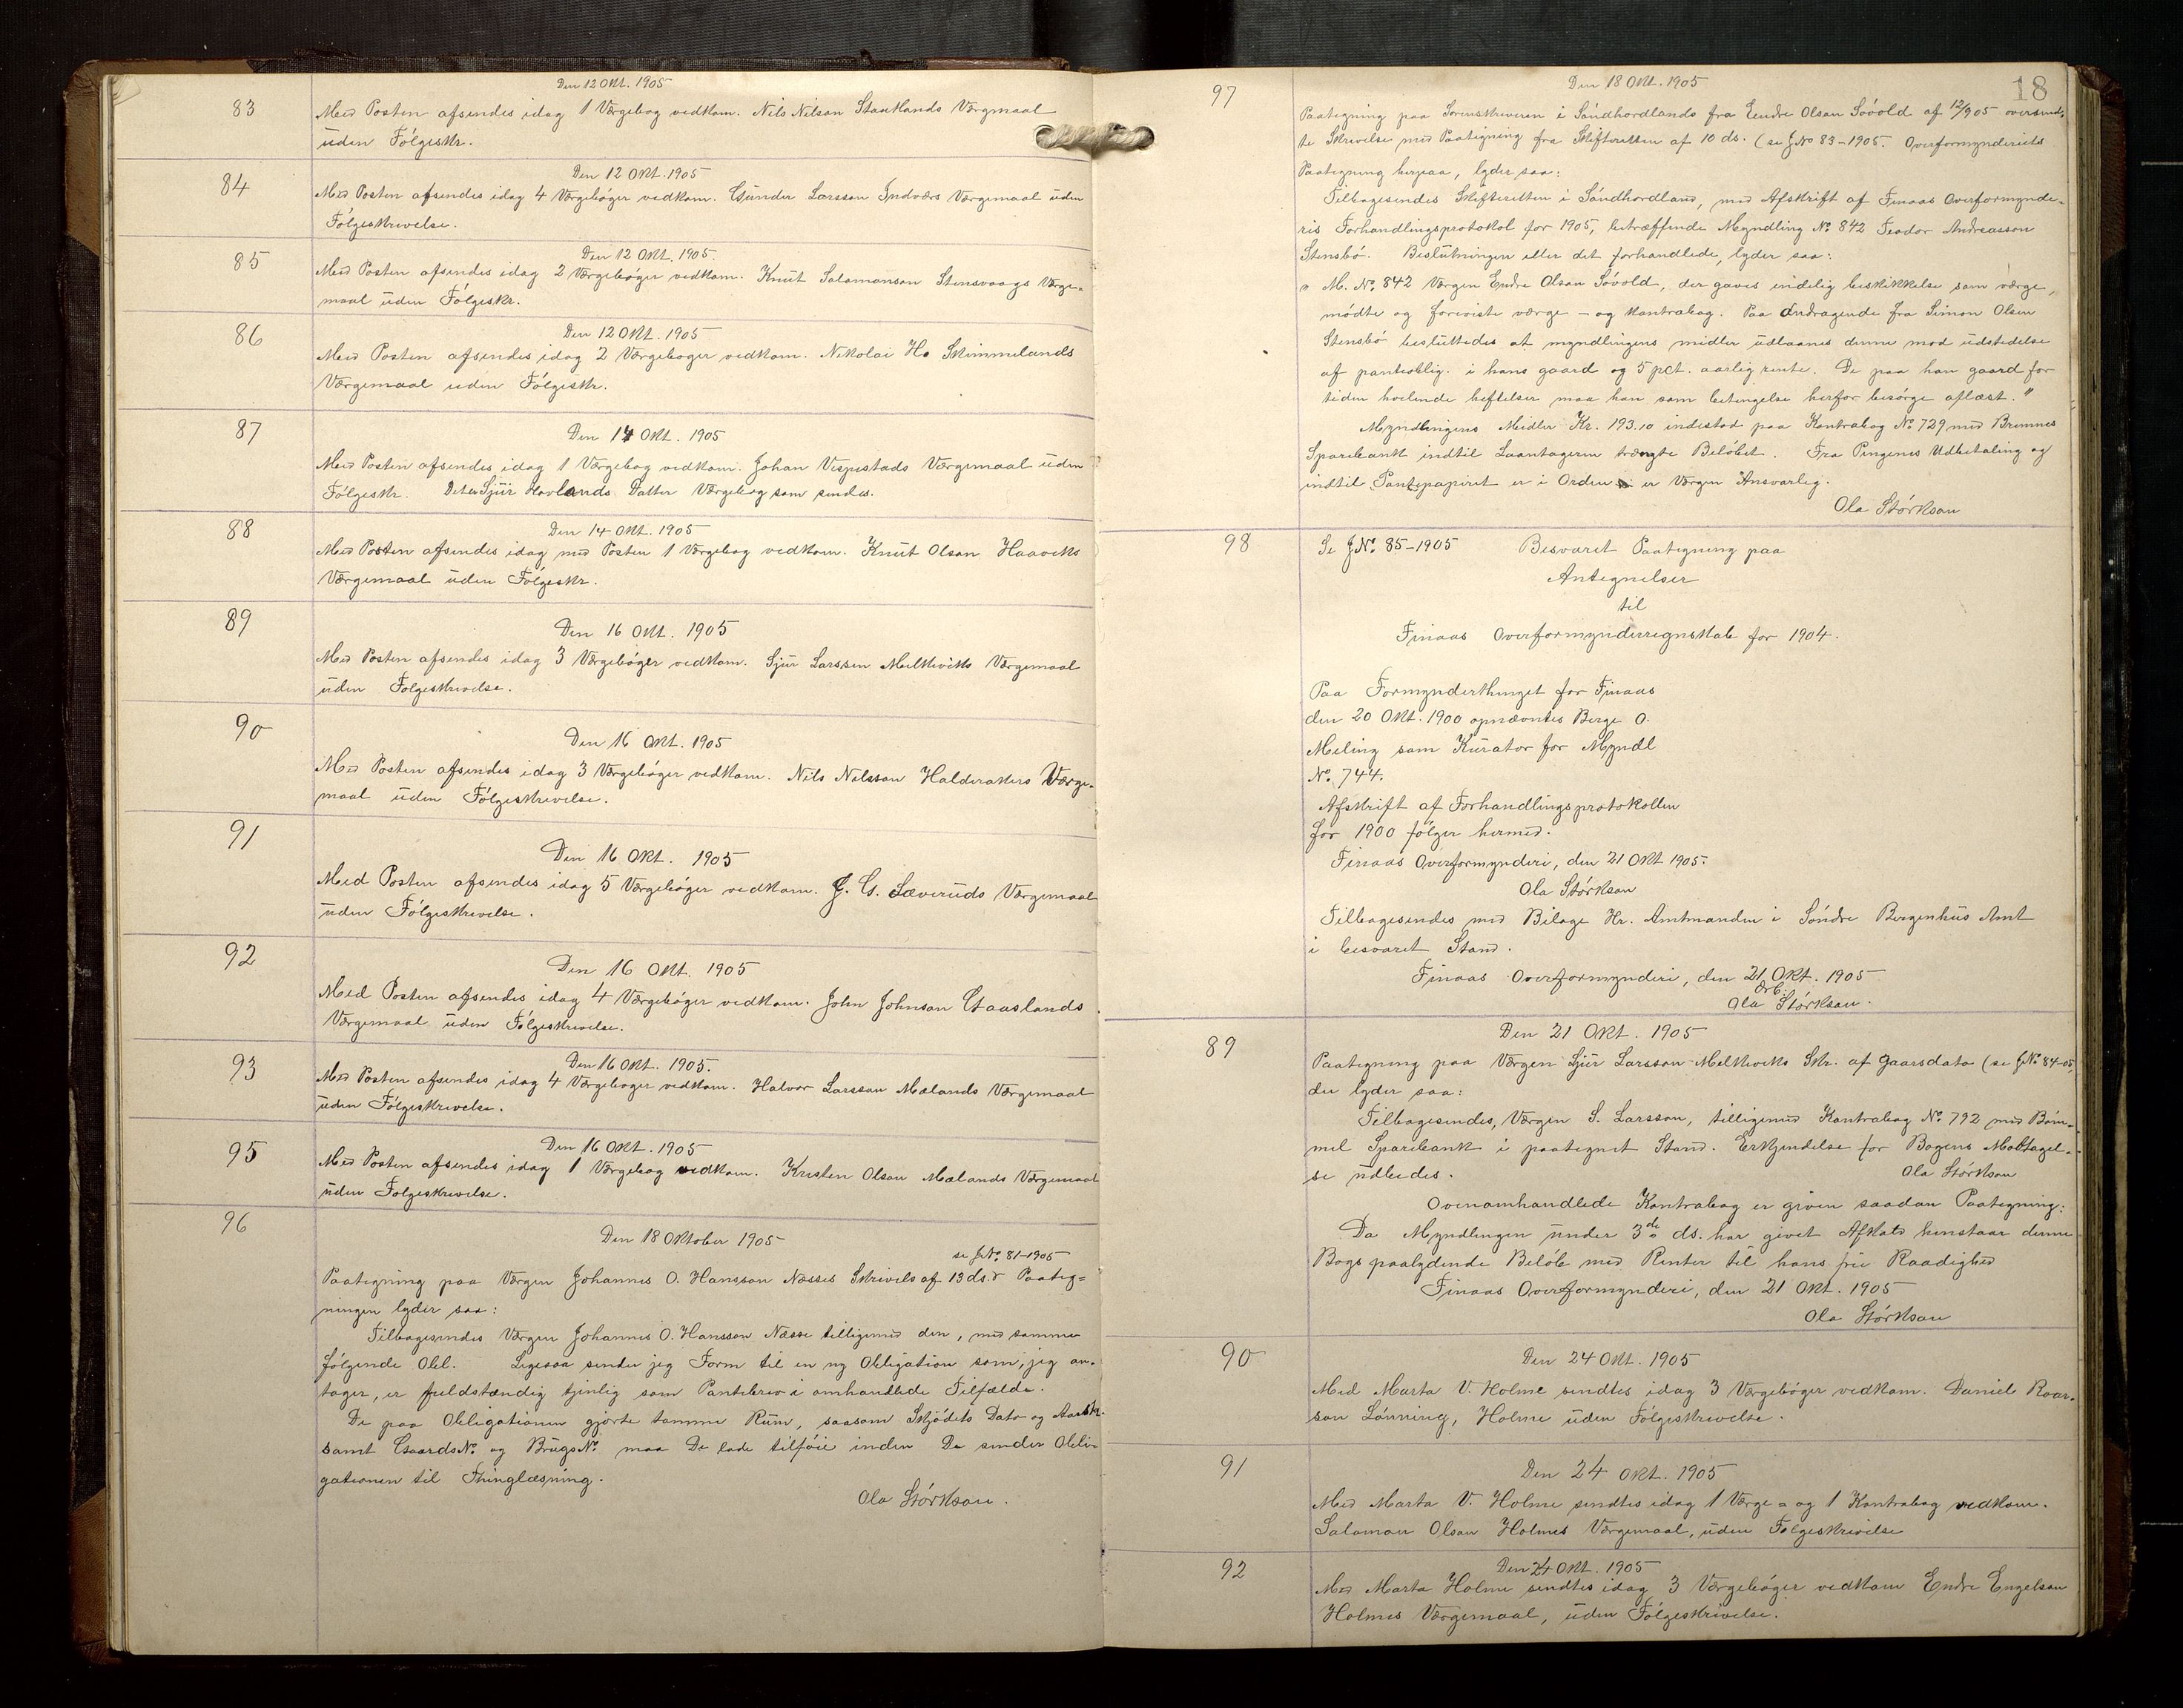 Den 12 Okt. 1905
83 Med Posten afsendes idag 1 Værgebog vedkom. Nils Nilson Stautlands Værgmaal
uden Følgeskr.
Den 12 Okt. 1905
84 Med Posten afsendes idag 4 Værgebøger vedkom. Gunder Larsson Indværs Værgemaal uden
Følgeskrivelse.
Den 12 Okt. 1905.
85 Med Posten afsendes idag 2 Værgebøger vedkom. Knut Salamonson Stensvaags Værge-
maal uden Følgeskr.
Den 12 Okt. 1905
86 Med Posten afsendes idag 2 Værgebøger vedkom. Nikolai H. Skimmelands
Værgemaal uden Følgeskr.
Den 14 Okt. 1905
87 Med Posten afsendes idag 1 Værgebog vedkom. Johan Vespestads Værgemaal uden
Følgeskr. Det er Sjur Hovlands Datter Værgebog som sendes.
Den 14 Okt. 1905
88 Med Posten afsendes idag med Posten 1 Værgebog vedkom. Knut Olson Haaviks
Værgemaal uden Følgeskr.
Den 16 Okt. 1905
89 Med Posten afsendes idag 3 Værgebøger vedkom. Sjur Larssen Melkeviks Værgemaal
uden Følgeskrivelse.
Den 16 Okt. 1905
90 Med Posten afsendes idag 3 Værgebøger vedkom. Nils Nelsson Halderakers Værge-
maal uden Følgeskrivelse.
Den 16 Okt. 1905
91 Med Posten afsendes idag 5 Værgebøger vedkom. J. G. Sæveruds Værgemaal
uden Følgeskrivelse.
Den 16 Okt. 1905
92 Med Posten afsendes idag 4 Værgebøger vedkom. John Johnson Gaaslands
Værgemaal uden Følgeskrivelse.
Den 16 Okt. 1905.
93 Med Posten afsendes idag 4 Værgebøger vedkom. Halvor Larsson Mælands Værgemaal
uden Følgeskrivelse.
Den 16 Okt. 1905
95 Med Posten afsendes idag 1 Værgebog vedkom. Kristen Olson Mælands Værgemaal
uden Følgeskrivelse.
96 Den 18 Oktober 1905
se JNo. 81-1905
Paategning paa Værgen Johannes O. Hansson Næsses Skrivels af 13 ds. Paateg=
ningen lyder saa:
Tilbagesendes Værgen Johannes O. Hansson Næsse tilligemed den, med samme
følgende Obl. Ligesaa sender jeg Form til en ny Obligation som, jeg an-
tager, er fuldstændig tjenlig som Pantebrev i omhandlede Tilfælde.
De paa Obligationen gjorte tomme Rum, saasom Skjødets Dato og Aarstr.
samt Gaards No. og Brugs No. maa De lade tilføie inden De sender Obli-
gationen til Thinglæsning.
Ola Størkson.
18
Den 18 Okt. 1905
97 Paategning paa Sorenskriveren i Søndhordlands fra Endre Olson Søvold af 12/905 oversend-
te Skrivelse med Paategning fra Skifteretten af 10 ds. (se JNo 83-1905. Overformynderiets
Paategning herpaa, lyder saa:
Tilbagesendes Skifteretten i Søndhordland, med Afskrift af Finaas Overformynde-
ris Forhandlingsprotokol for 1905, betræffende Myndling No. 842 Teodor Andreasson
Stensbø. Beslutningen eller det forhandlede, lyder saa:
" M. No. 842 Værgen Endre Olson Søvold, der gaves endelig beskikkelse som værge,
mødte og foreviste værge - og kontrabog. Paa andragende fra Simon Olsen
Stensbø besluttedes at myndlingens midler udlaanes denne mod udstedelse
af panteoblig. i hans gaard og 5 pct. aarlig rente. De paa han gaard for
tiden hvelende heftelser maa han som betingelse herfor besørge aflæst. "
Myndlingens Midler Kr. 193.10 indestod paa Kontrabog No. 729 med Bremnes
Sparebank indtil Laantageren trængte Beløbet. Fra Pengenes Udbetaling og
indtil Pantepapiret er i Orden er Værgen Ansvarlig.
Ola Størkson
98 Se JNo. 85-1905 Besvaret Paategning paa
Antegnelser
til
Finaas Overformynderregnskab for 1904.
Paa Formynderthinget for Finaas
den 20 Okt. 1900 opnævntes Berge O.
Meling som Kurator for Myndl
No. 744.
Afskrift af Forhandlingsprotokollen
for 1900 følger hermed.
Finaas Overformynderi, den 21 Okt 1905.
Ola Størkson
Tilbagesendes med Bilage Hr. Amtmanden i Søndre Bergenhus Amt
i besvaret Stand.
Finaas Overformynderi, den 21 Okt. 1905
Ola Størkson.
Den 21 Okt. 1905
89 Paategning paa Værgen Sjur Larsson Melkeviks Skr. af Gaarsdato (se JNo 84-05,
der lyder saa:
Tilbagesendes, Værgen S. Larsson, tilligemed Kontrabog No. 792 med Bøm-
mel Sparebank i paategnet Stand. Erkjendelse for Bogens Modtagel-
se udbedes. Ola Størkson
Ovenomhandlede Kontrabog er given saadan Paategning:
Da Myndlingen under 3de ds. har givet Afkald henstaar denne
Bogs paalydende Beløb med Renter til hans frie Raadighed
Finaas Overformynderi, den 21 Okt. 1905
Ola Størkson
Den 24 Okt. 1905
90 Med Marta V. Holme sendtes idag 3 Værgebøger vedkom. Daniel Roar-
son Lønning, Holme uden Følgeskrivelse.
Den 24 Okt. 1905
91 Med Marta V. Holme sendtes idag 1 Værge = og 1 Kontrabog vedkom.
Salomon Olson Holmes Værgemaal, uden Følgeskrivelse
Den 24 Okt. 1905
92 Med Marta Holme sendtes idag 3 Værgebøger vedkom Endre Engelson
Holmes Værgemaal, uden Følgeskrivelse.